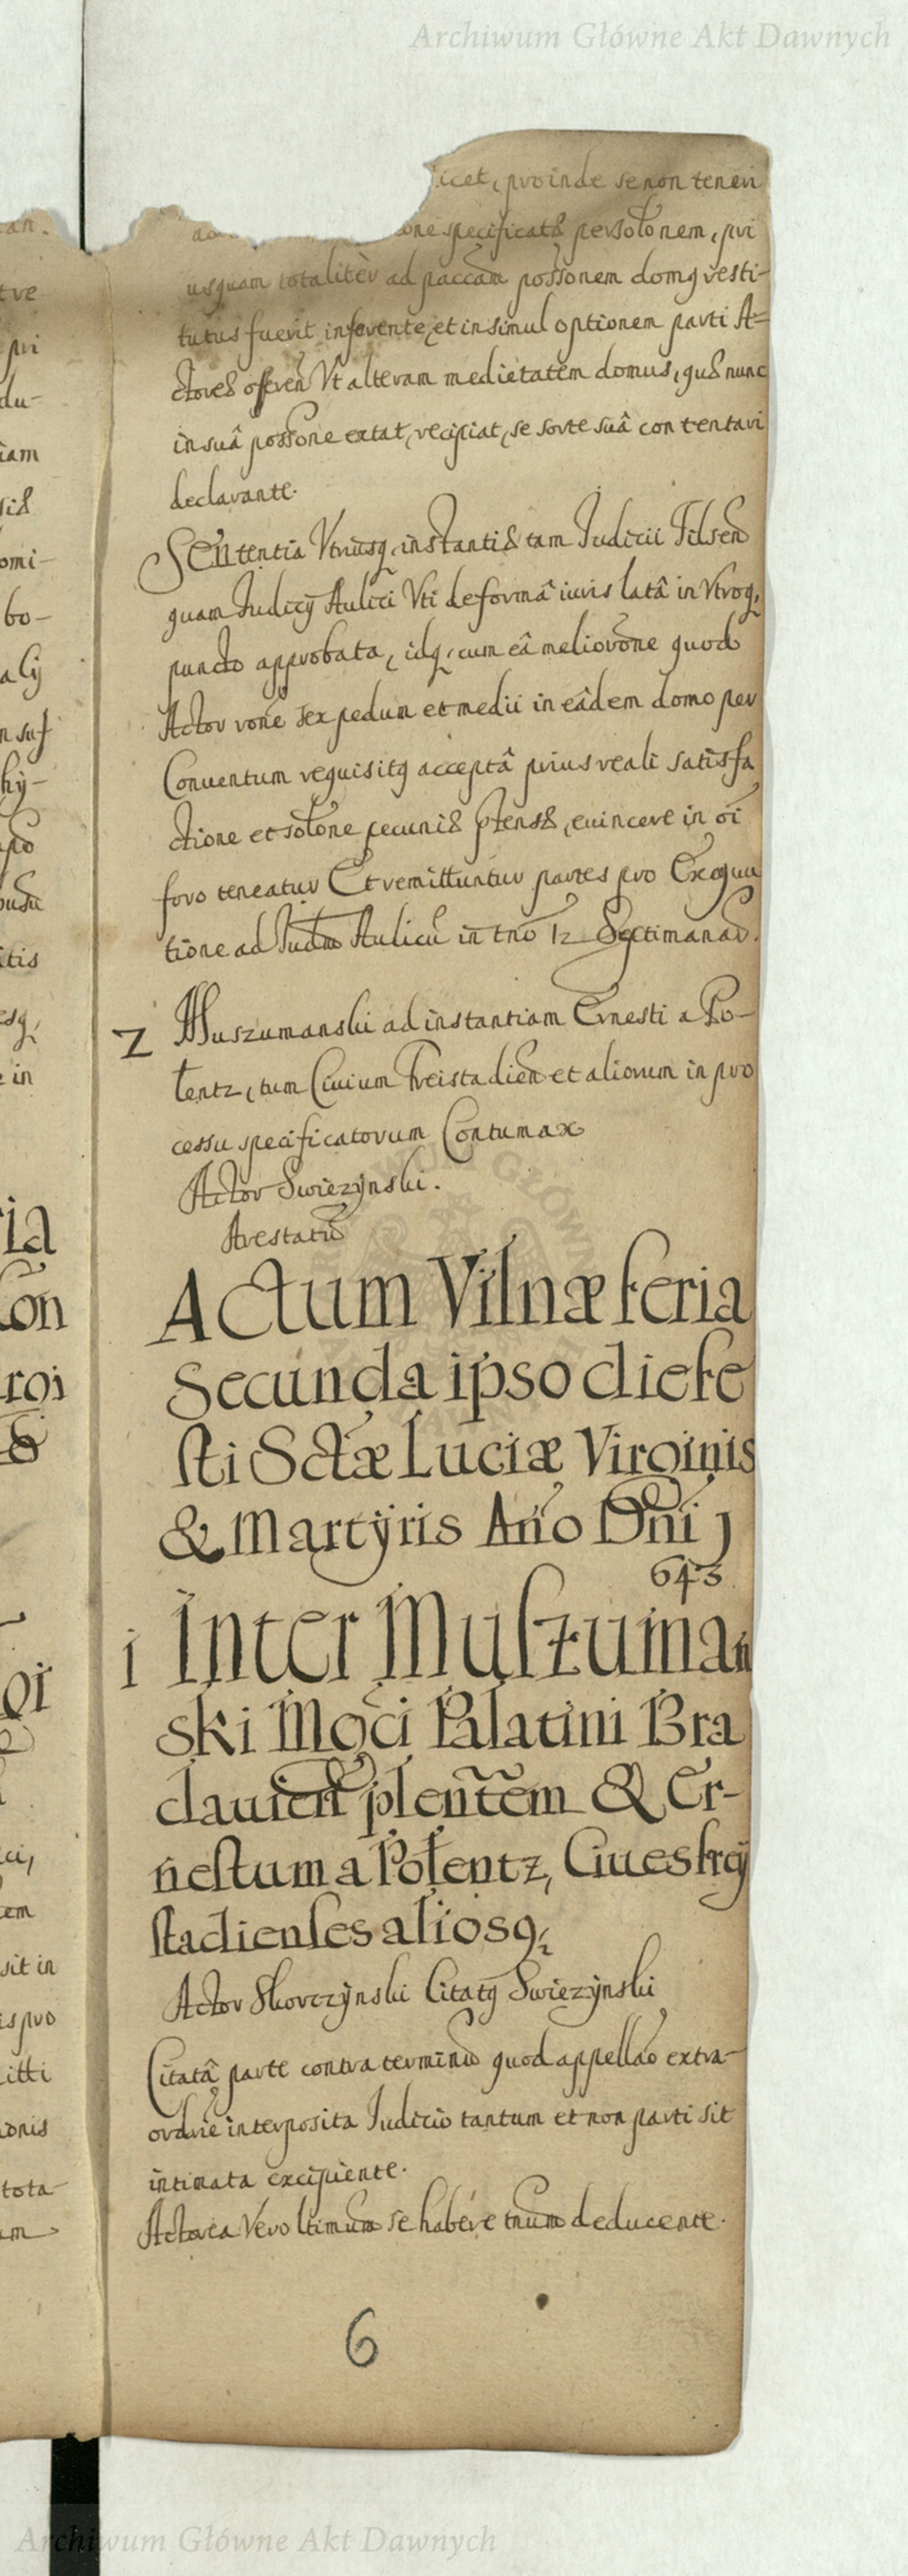 Archiwum Główne Akt Dawnych
icet, proinde se non teneri
one specificatæ persolõnem, pri
usquam totaliter ad paccãm possõnem domq vesti-
tutus fuerit inferente, et in simul optionem parti A=
ctoreæ offeren Vt alteram medietatem domus, quæ nunc
in suâ possõne extat, recipiat, se sorte suâ contentari
declarante.
Sententia Vtriusq, instantiæ tam Judicii Tilsen
quam Judicÿ Aulici Vti de formâ iuris latâ in Vtroq,
puncto approbata, idq, cum eâ meliorõne quod
Actor rõne sex pedum et medii in eâdem domo per
Conuentum requisitq acceptâ prius reali satisfa
ctione et solõne pecuniæ ptensæ, euincere in õi
foro teneatur Et remittuntur partes pro Exequu
tione ad Judm Aulicũ in tnõ 12 Septimanar.
2 Muszumanski ad instantiam Ernesti a Po-
lentz, tum Ciuium Freistadien et aliorum in pro
cessu specificatorum Contumax
Actor Swiezÿnski.
Arestatũ
Actum Vilnæ feria
Secunda ipso die fe
sti Sctæ Luciæ Virginis
& Martÿris Año Dñi 1
643
1 Inter Muszuman
ski Mõci Palatini Bra
clauien plentẽm & Er-
nestum a Polentz, Ciues freÿ
stadienses aliosq,
Actor Skorczÿnski Citatq Swiezÿnski
Citatâ parte contra terminũ quod appellão extra-
ordrie interposita Judicio tantum et non parti sit
intimata excipiente.
Actorea Vero ltimum se habere tnum deducente.
6
Archiwum Główne Akt Dawnych